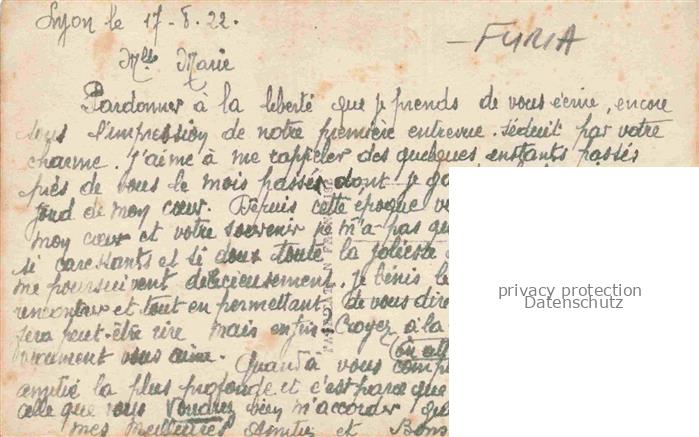 Lyon le 17-8.22.
- FURIA
Mlle Marie
Pardonner à la liberté que je prends de vous écrire, encore
sous l'impression de notre première entrevue. Séduit par votre
charme. J'aime à me rappeler des quelques instants passés
près de vous le mois passés dont je
fond de mon cœur. Depuis cette époque
mon cœur et votre souvenir je m'a pas
si caressants et si doux toute la
me poursuivent délicieusement. Je bénis le
rencontrer et tout en permettant de vous
fera peut-être rire mais enfin Croyez à la
vraiment vous aime. Quand à vous
amitié la plus profonde et c'est parce que
celle que vous voudrez bien m'accorder
mes meilleures Amitiés et Bons
FABRICATION FRANÇAISE
privacy protection
Datenschutz